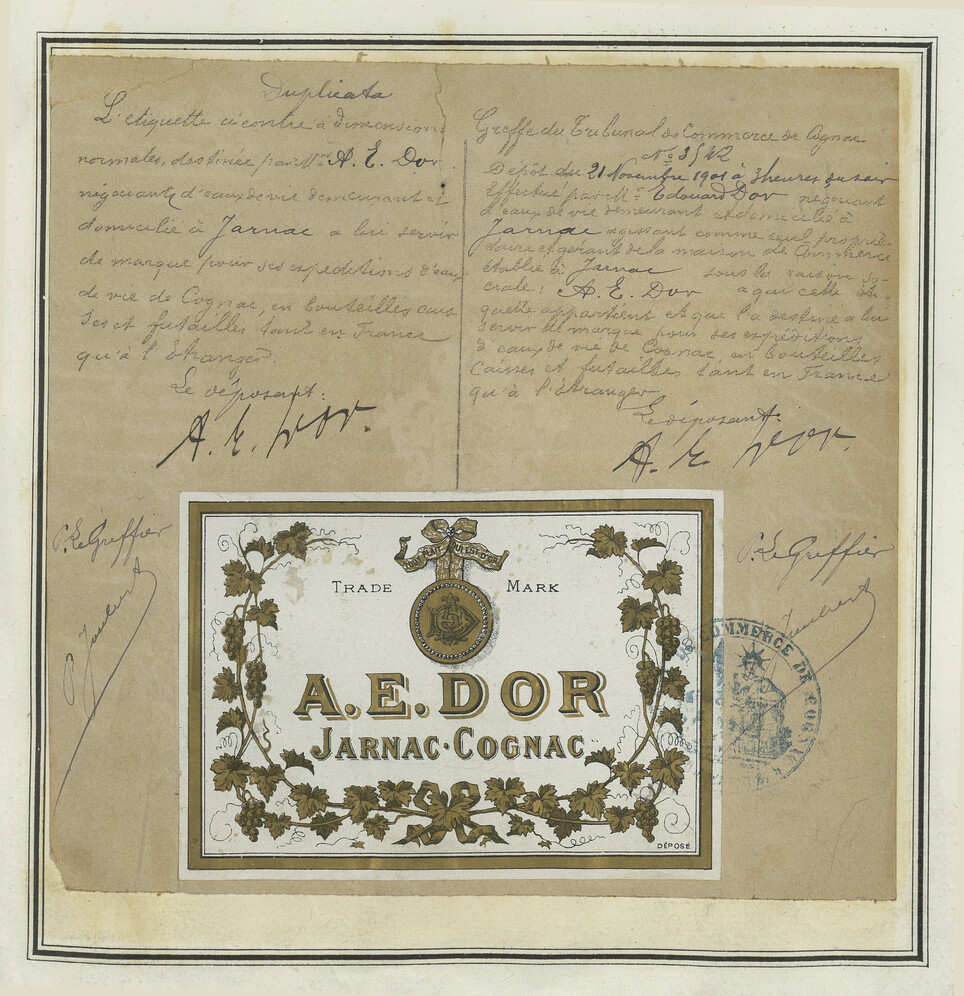 Duplicata
L'étiquette ci contre à dimensions
normales, destinée par Mr A. E. Dor
négociant d'eaux de vie demeurant et
domicilié à Jarnac a lui servir
de marque pour ses expéditions d'eaux
de vie de Cognac, en bouteilles cais
ses et futailles tant en France
qu'à l'Etranger.
Le déposant:
A. E. Dor.
Greffe du Tribunal de Commerce de Cognac
No
Dépôt du 21 Novembre 1901 à 3 heures du soir
Effectué par Mr Edouard Dor négociant
d'eaux de vie demeurant et domicilié à
Jarnac agissant comme seul proprié-
taire et gérant de la maison de Commerce
établie à Jarnac sous la raison so-
ciale: A. E. Dor a qui cette éti-
quette appartient et que l'a destine a lui
servir de marque pour ses expéditions
d'eaux de vie de Cognac, en bouteilles
caisses et futailles tant en France
qu'à l'Etranger
Le déposant:
A. E. Dor.
P. Le Greffier
P. Le Greffier
TRADE MARK
A.E.DOR
JARNAC·COGNAC
DÉPOSÉ
COMMERCE DE COGNAC